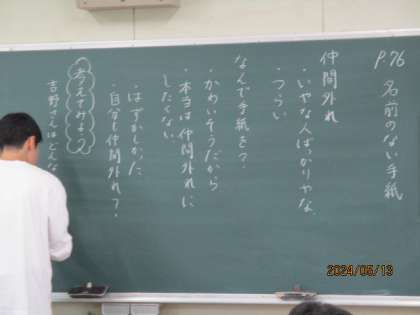 P.76 名前のない手紙
仲間外れ
・いやな人ばかりやな
・つらい
なんで手紙を?
・かわいそうだから
・本当は仲間外れに
したくない
・はずかしかった
・自分も仲間外れ?
考えてみよう
吉野さんはどんな
2024/05/13